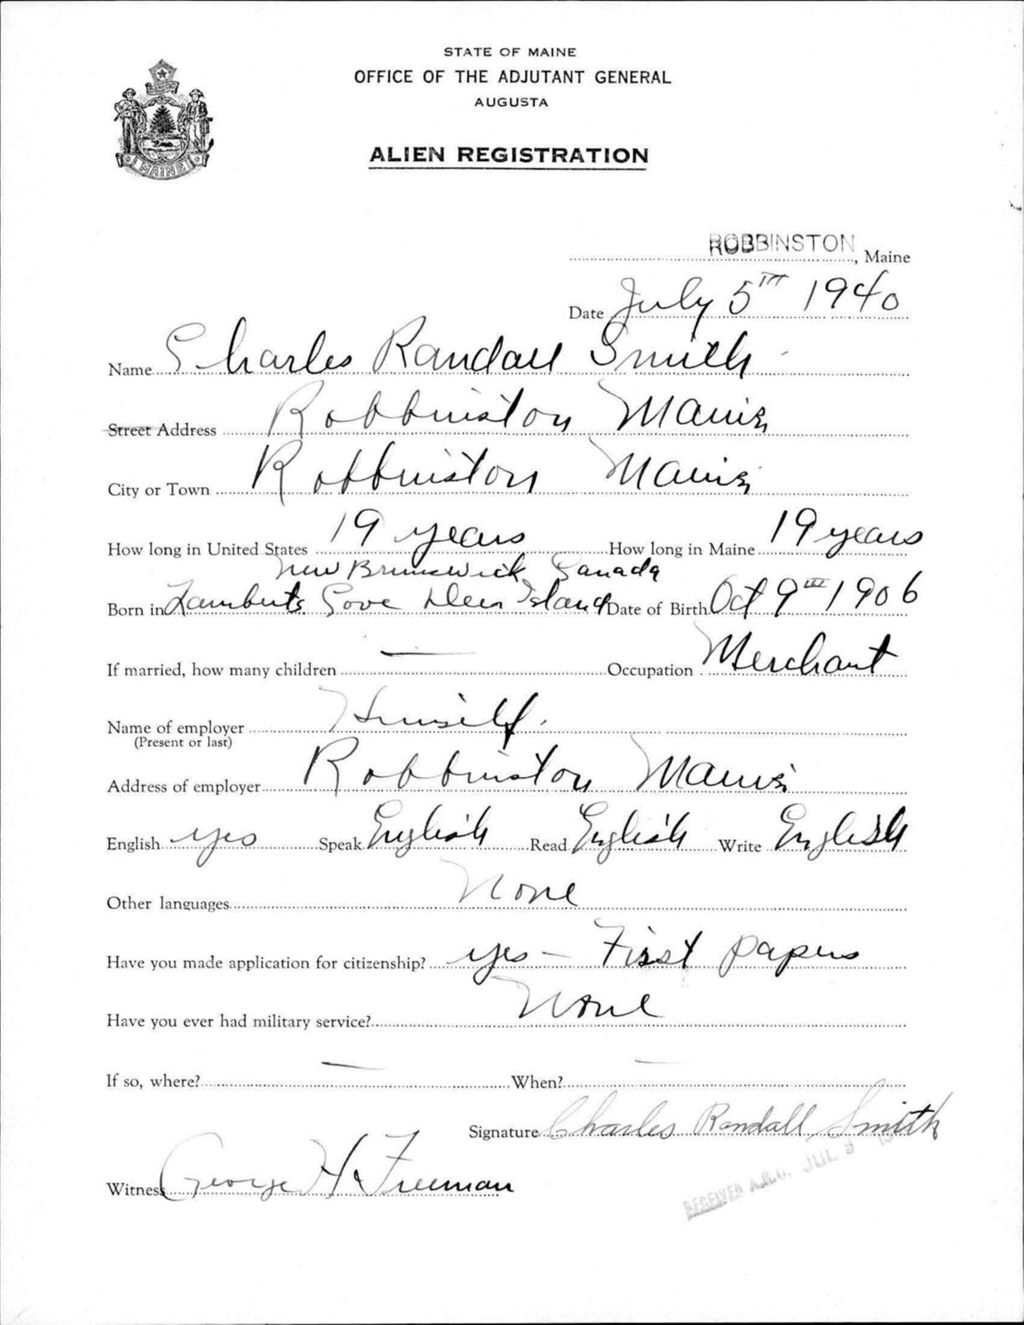 STATE OF MAINE
OFFICE OF THE ADJUTANT GENERAL
AUGUSTA
ALIEN REGISTRATION
MAINE
ROBBINSTON, Maine
Date July 5TH 1940
Name Charles Randall Smith
Street Address Robbinston Maine
City or Town Robbinston Maine
How long in United States 19 years How long in Maine 19 years
New Brunswick, Canada
Born in Lamberts Cove Deer Island Date of Birth Oct 9TH 1906
If married, how many children — Occupation Merchant
Name of employer Himself.
(Present or last)
Address of employer Robbinston Maine
English yes Speak English Read English Write English
Other languages None
Have you made application for citizenship? yes – First papers
Have you ever had military service? None
If so, where? — When? —
Signature Charles Randall Smith
Witness George H Freeman
RECEIVED A.G.O. JUL 9